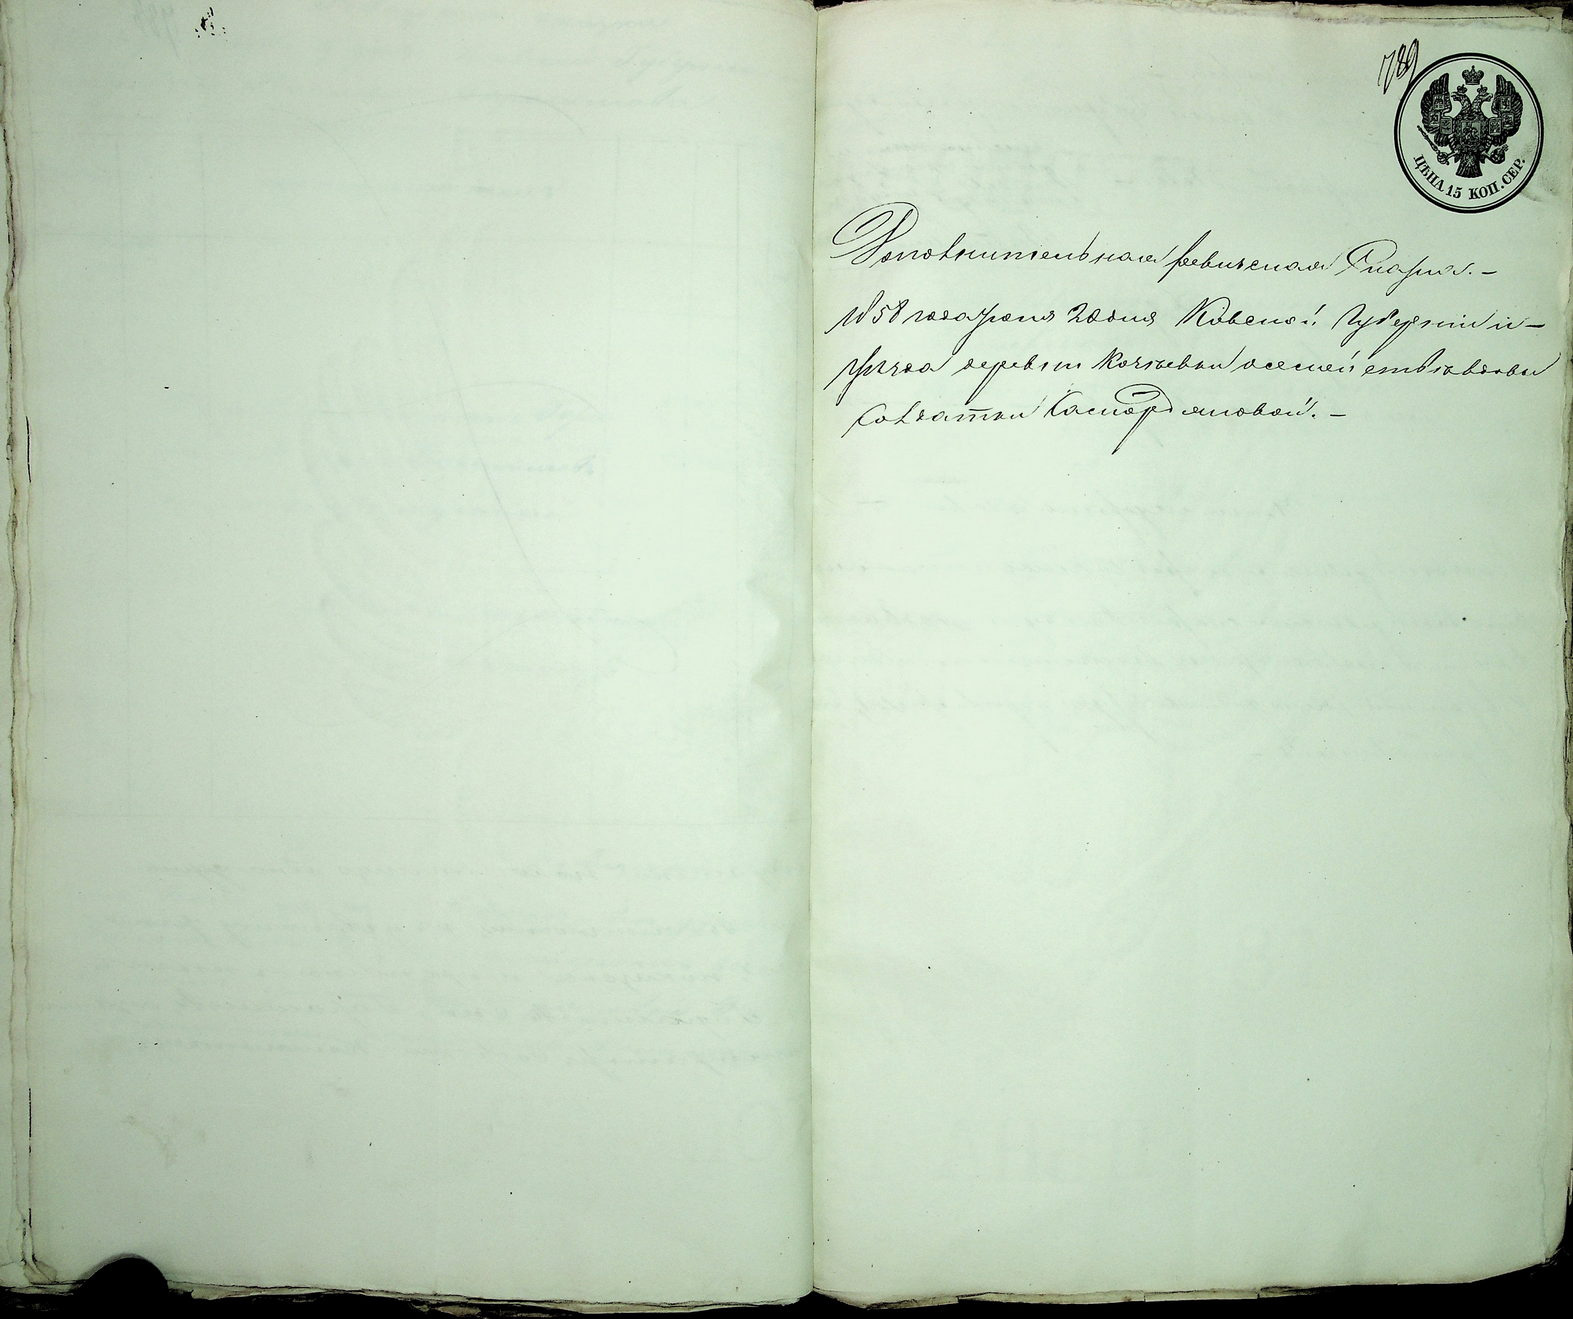 789
ЦѢНА 15 КОП. СЕР.
Дополнительная ревизская Сказка. —
1858 года Іюня 20 дня Ковенской Губерніи и —
уѣзда деревни о семействѣ вдовы
Солдатки